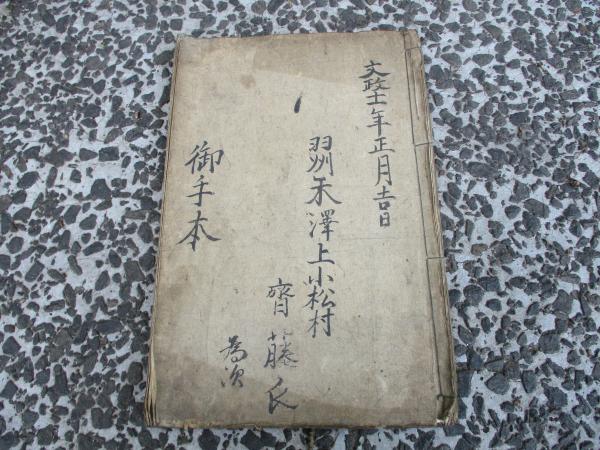 文政十一年正月吉日
羽州米澤上小松村
齊藤氏
為次
御手本